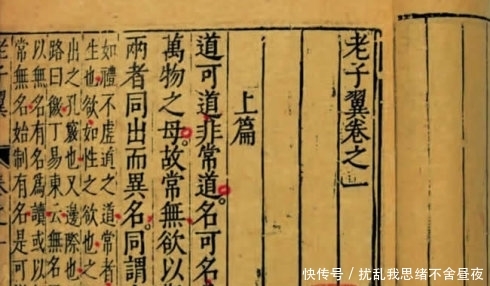 老子翼卷之一
上篇
道可道非常道名可名
萬物之母故常無欲以
兩者同出而異名同謂
如禮不虛道之道常者
生也欲如性之欲也之
出之孔竅也又邊際也
路曰徼丁易東云無名
以無名有名為讀或以
常無名始制有名是可
老子翼 卷之
快传号 / 扰乱我思绪不舍昼夜